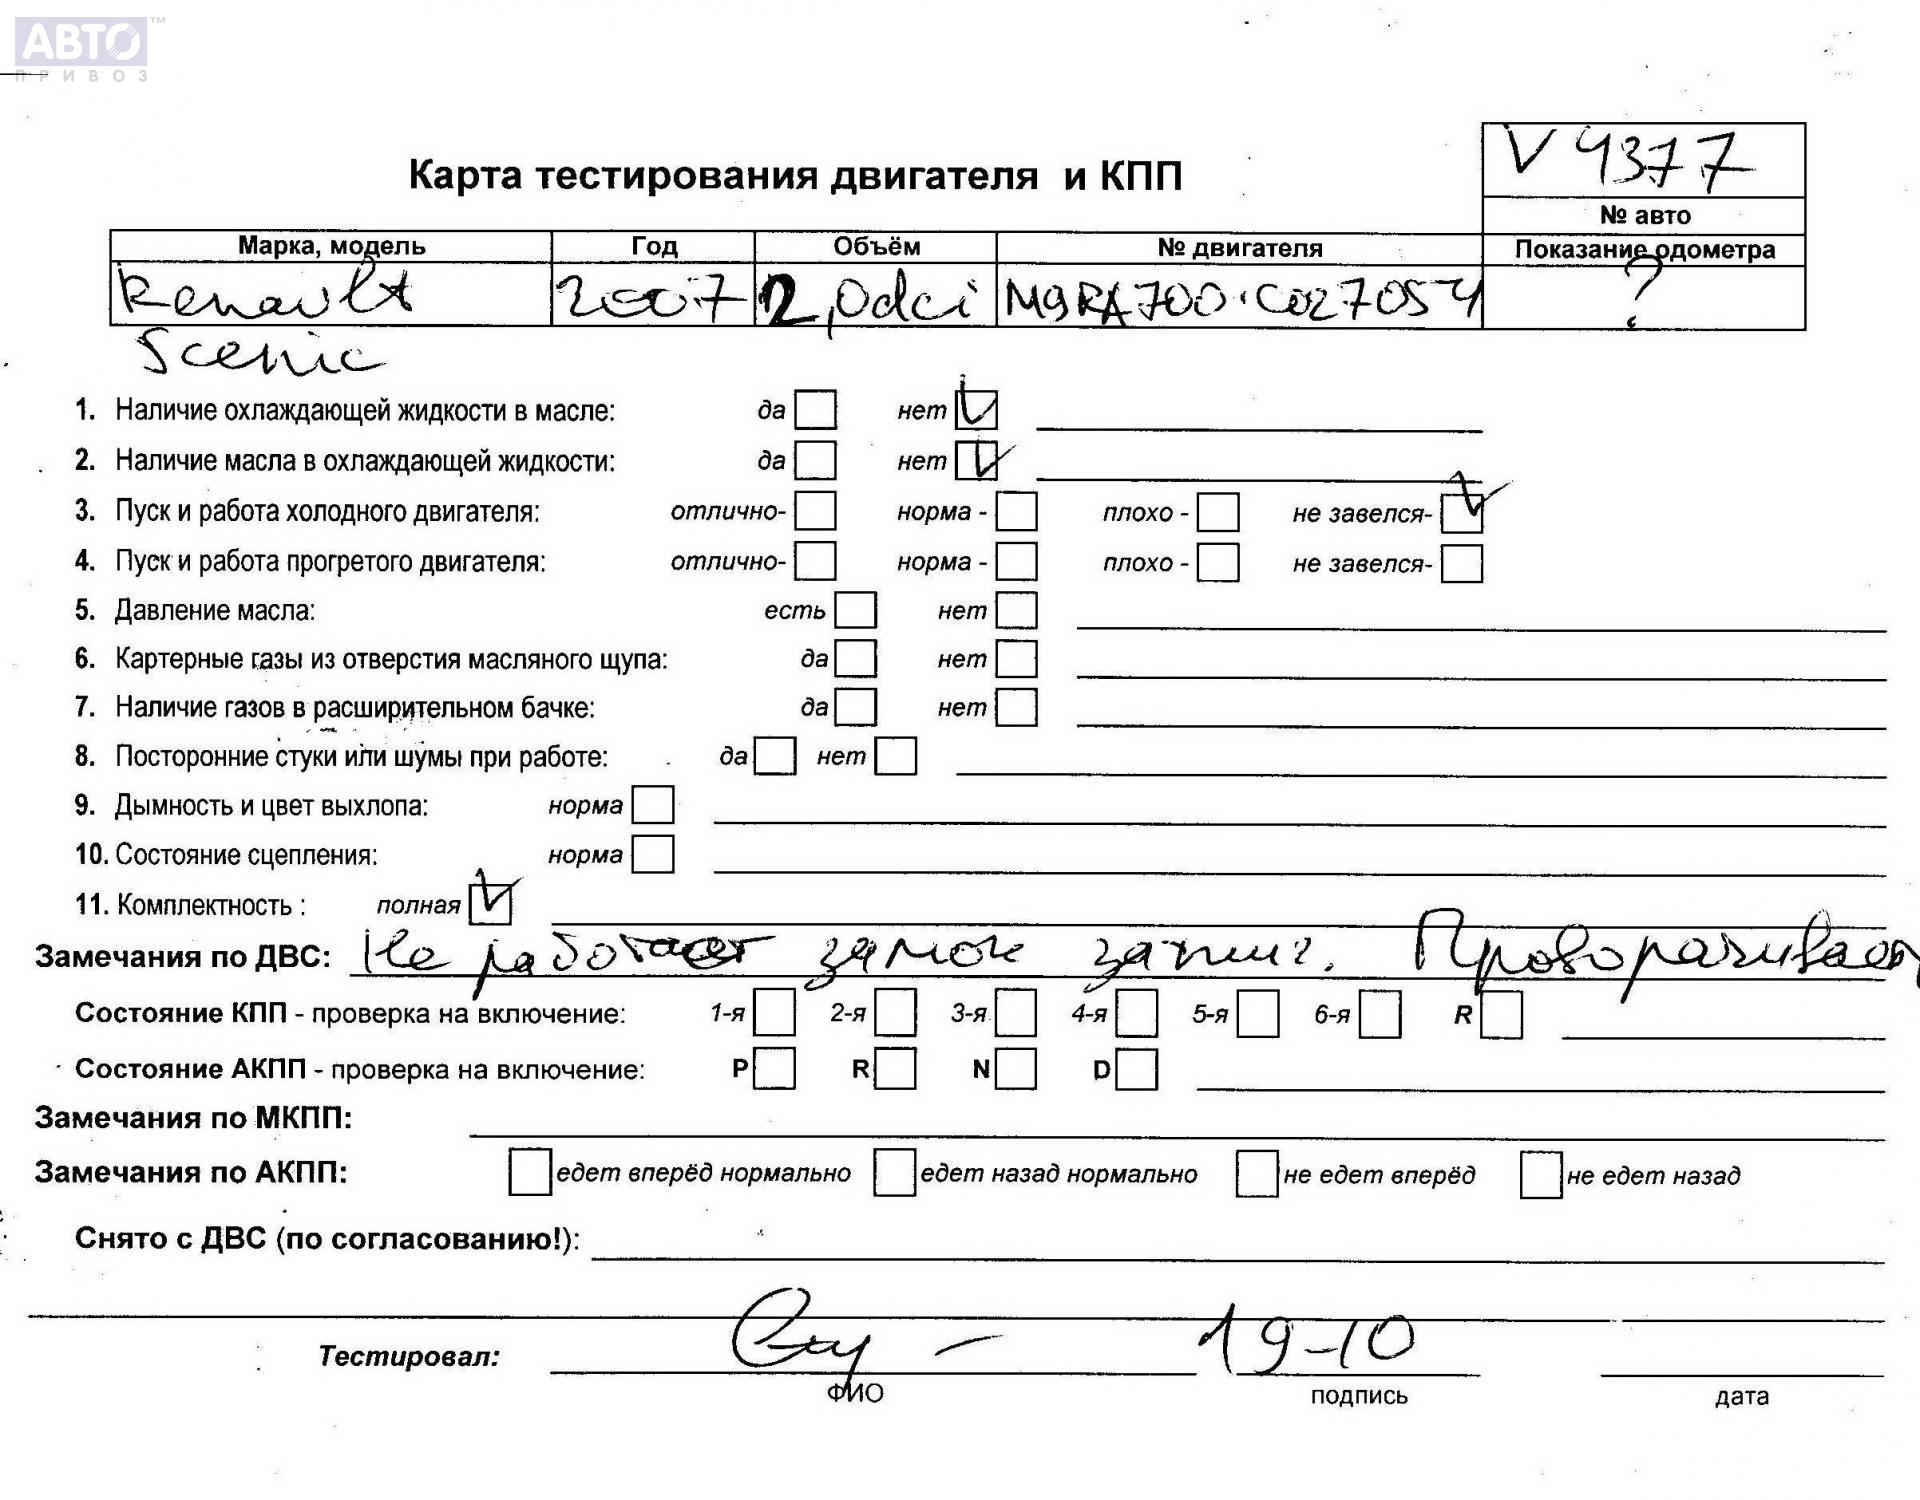 АВТО™
ПРИВОЗ
V 4377
Карта тестирования двигателя и КПП
№ авто
Марка, модель Год Объём № двигателя Показание одометра
Renault 2007 2,0dci M9RA700·C027054 ?
Scenic
1. Наличие охлаждающей жидкости в масле: да нет
2. Наличие масла в охлаждающей жидкости: да нет
3. Пуск и работа холодного двигателя: отлично- норма - плохо - не завелся-
4. Пуск и работа прогретого двигателя: отлично- норма - плохо - не завелся-
5. Давление масла: есть нет
6. Картерные газы из отверстия масляного щупа: да нет
7. Наличие газов в расширительном бачке: да нет
8. Посторонние стуки или шумы при работе: да нет
9. Дымность и цвет выхлопа: норма
10. Состояние сцепления: норма
11. Комплектность : полная
Замечания по ДВС: Не работает замок зажиг. Проворачивает
Состояние КПП - проверка на включение: 1-я 2-я 3-я 4-я 5-я 6-я R
Состояние АКПП - проверка на включение: P R N D
Замечания по МКПП:
Замечания по АКПП: едет вперёд нормально едет назад нормально не едет вперёд не едет назад
Снято с ДВС (по согласованию!):
Тестировал: 19-10
ФИО подпись дата